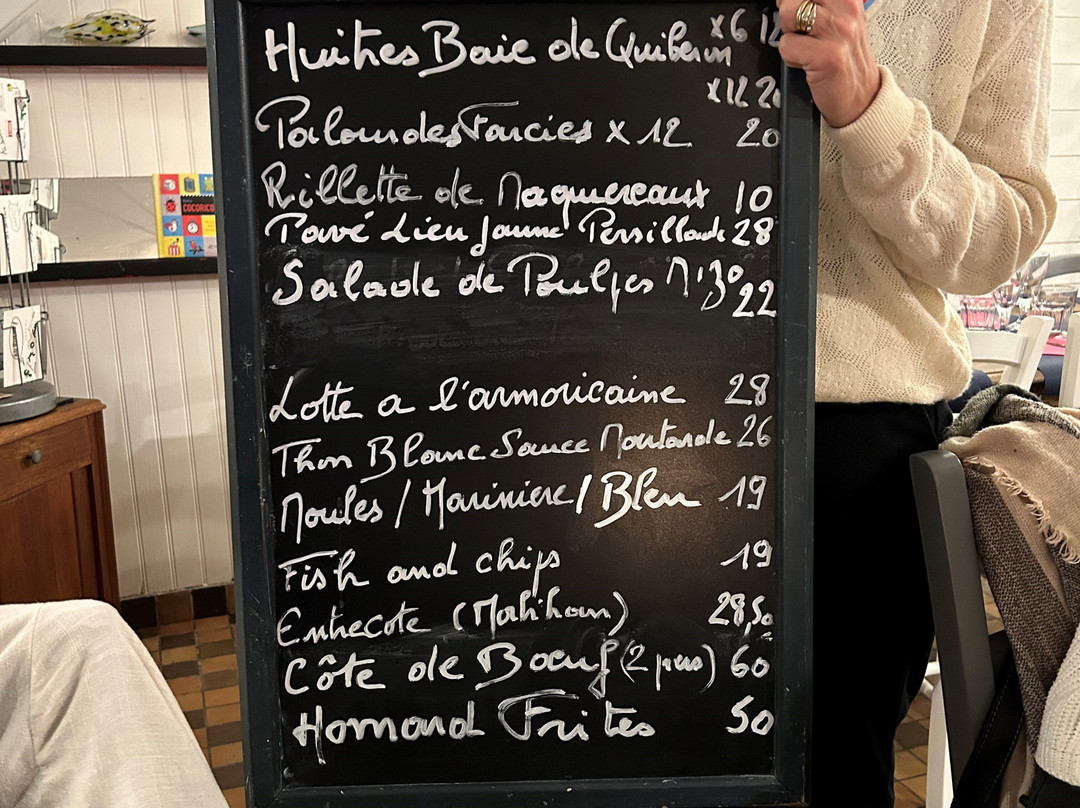 Huitres Baie de Quiberon x6 12
x12 20
Palourdes Farcies x 12 20
Rillette de Maquereaux 10
Pavé Lieu Jaune Persillade 28
Salade de Poulpes 22
Lotte a l'armoricaine 28
Thon Blanc Sauce Moutarde 26
Moules / Marinière / Bleu 19
Fish and chips 19
Entrecote 28,50
Côte de Boeuf (2 pers) 60
Homard Frites 50
COCORICO